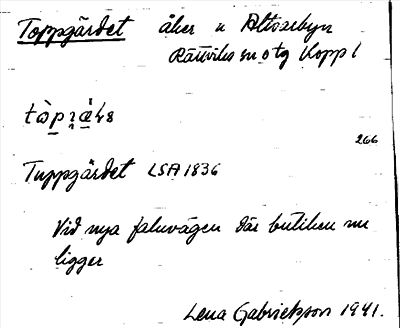 Toppgärdet åker u Altsarbyn
Rättviks sn otg Kopp l
266
Tuppgärdet LSA 1836
Vid nya faluvägen där butiken nu
ligger
Lena Gabrielsson 1941.